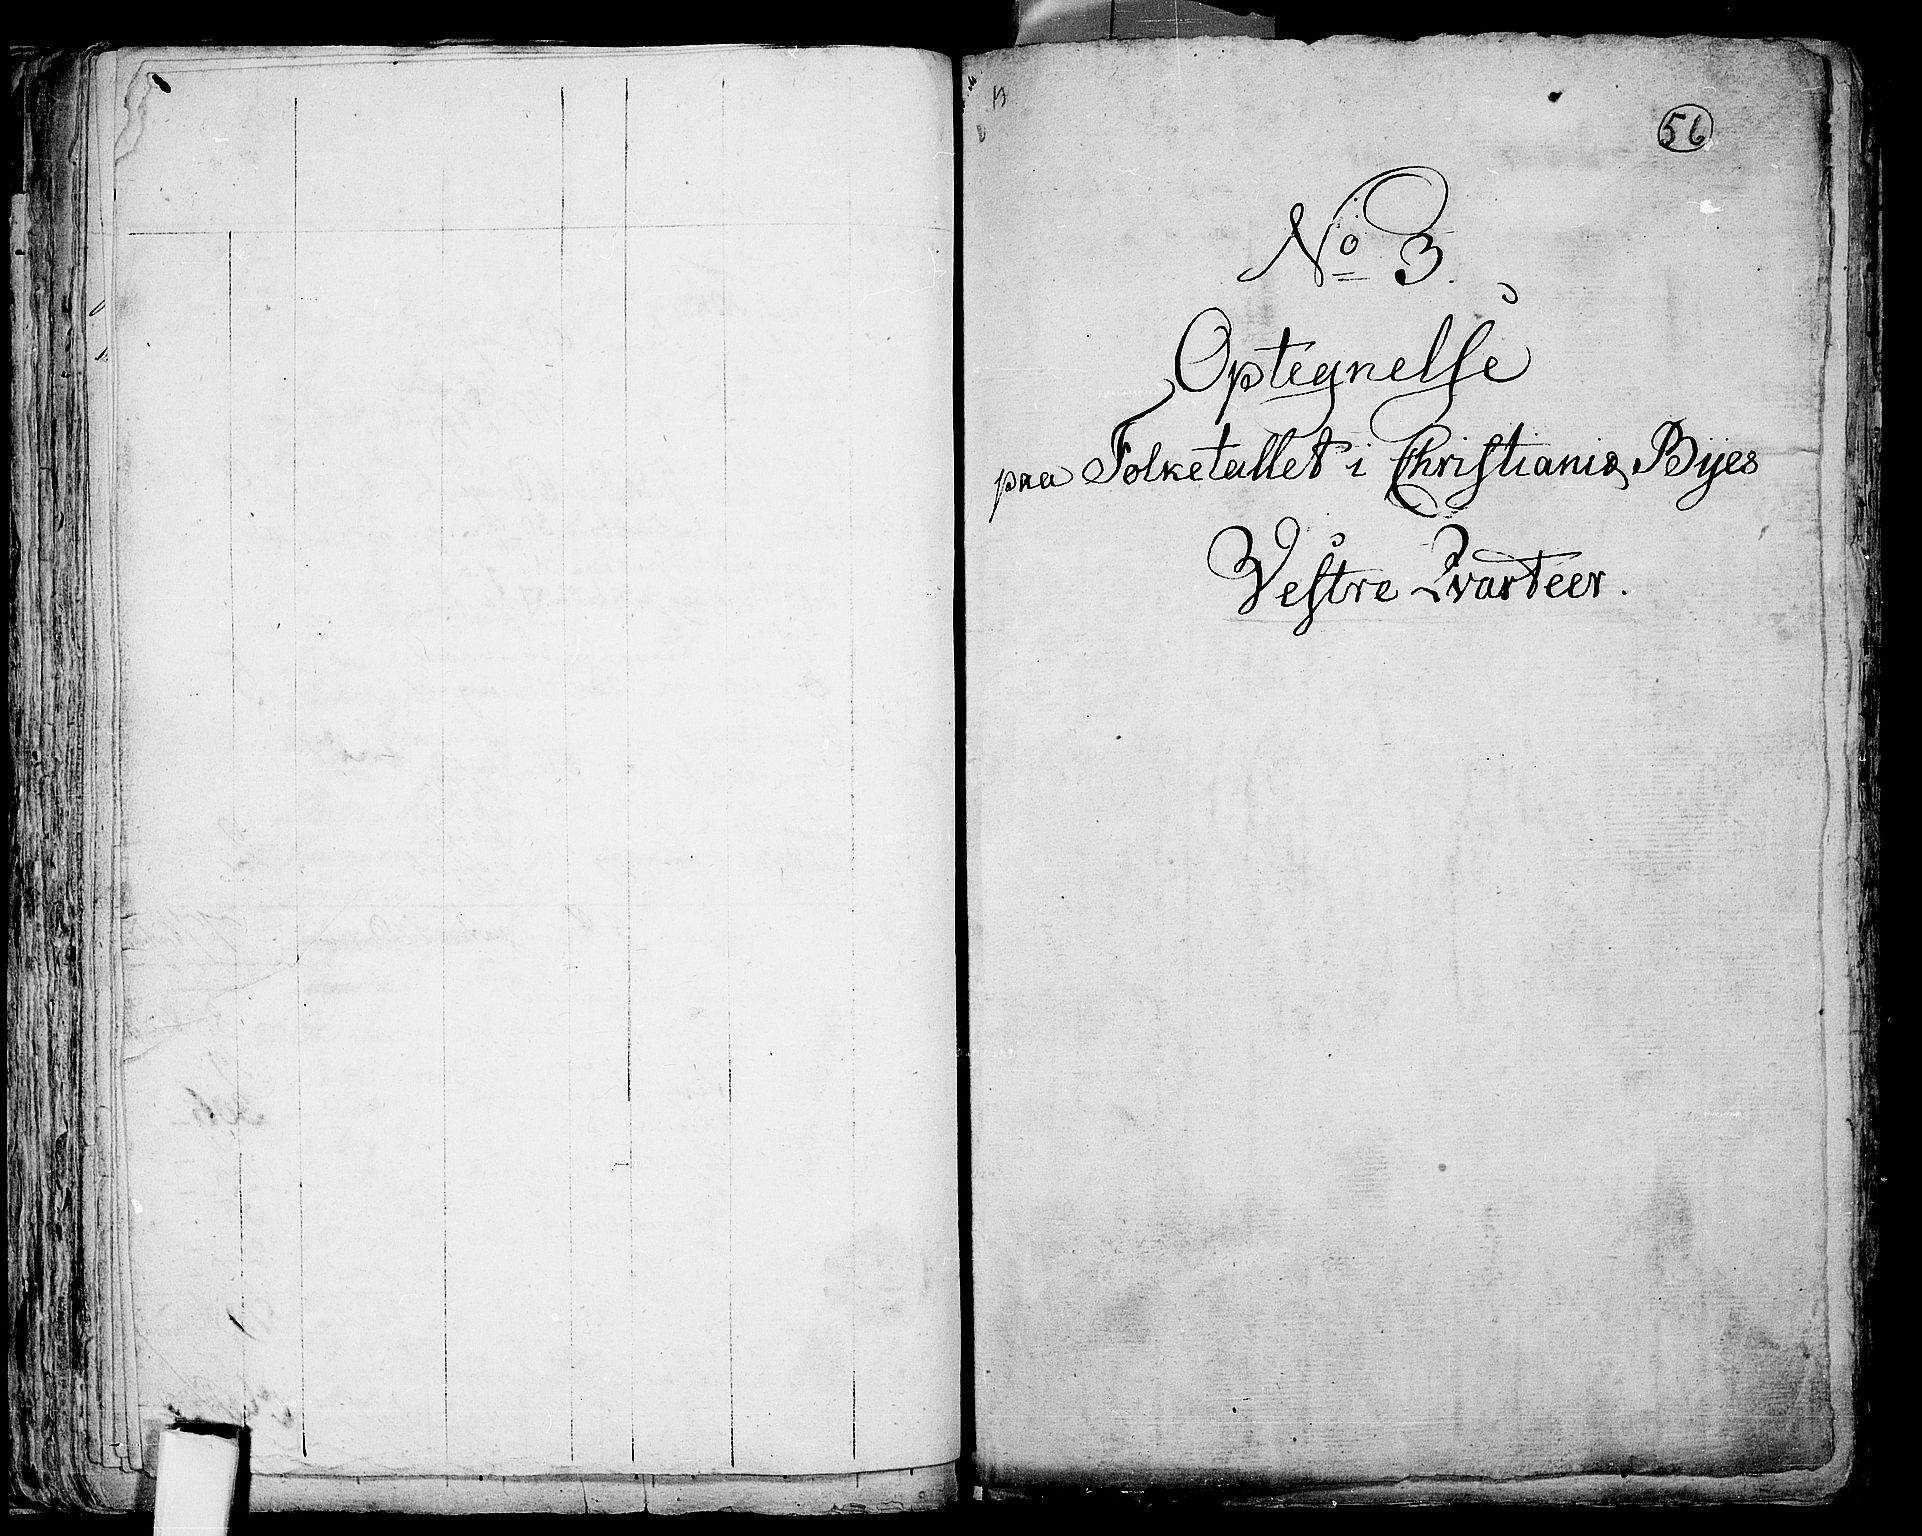 56
No 3.
Optegnelse
paa Folketallet i Christianiæ Byes
Vestre Qvarteer.